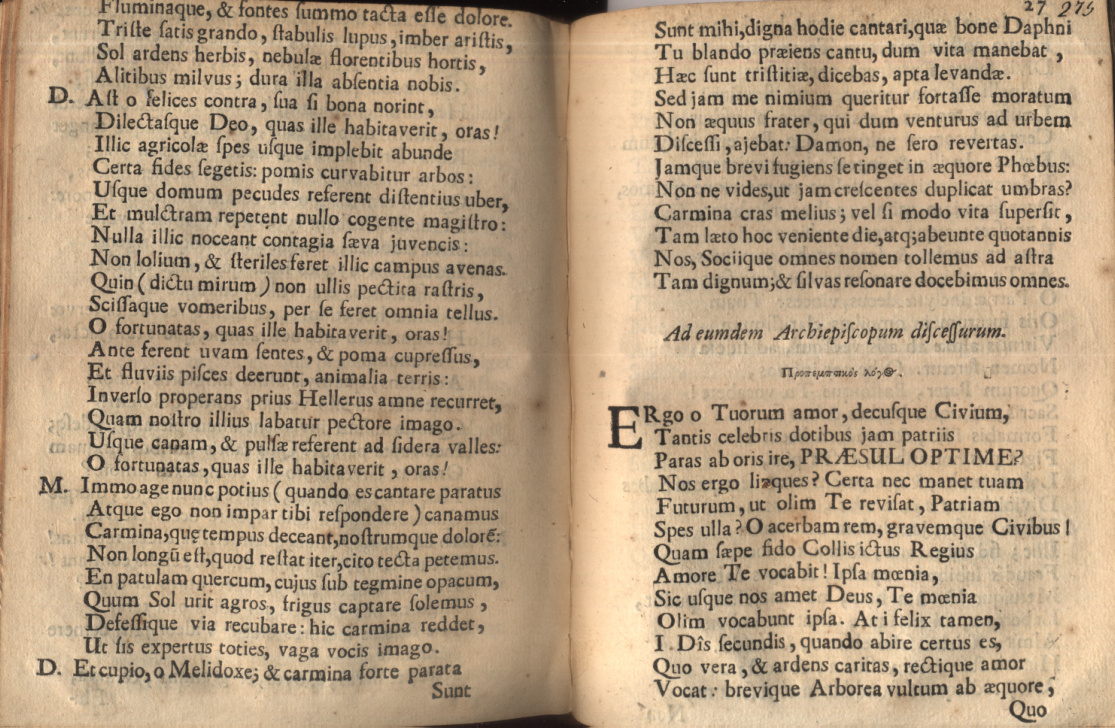 Fluminaque, & fontes summo tacta esse dolore.
Triste satis grando, stabulis lupus, imber aristis,
Sol ardens herbis, nebulæ florentibus hortis,
Alitibus milvus; dura illa absentia nobis.
D. Ast o felices contra, sua si bona norint,
Dilectasque Deo, quas ille habitaverit, oras!
Illic agricolæ spes usque implebit abunde
Certa fides segetis: pomis curvabitur arbos:
Usque domum pecudes referent distentius uber,
Et mulctram repetent nullo cogente magistro:
Nulla illic noceant contagia sæva juvencis:
Non lolium, & steriles feret illic campus avenas.
Quin (dictu mirum) non ullis pectita rastris,
Scissaque vomeribus, per se feret omnia tellus.
O fortunatas, quas ille habitaverit, oras!
Ante ferent uvam sentes, & poma cupressus,
Et fluviis pisces deerunt, animalia terris:
Inverso properans prius Hellerus amne recurret,
Quam nostro illius labatur pectore imago.
Usque canam, & pulsæ referent ad sidera valles:
O fortunatas, quas ille habitaverit, oras!
M. Immo age nunc potius (quando es cantare paratus
Atque ego non impar tibi respondere) canamus
Carmina, quę tempus deceant, nostrumque dolorē:
Non longū est, quod restat iter, cito tecta petemus.
En patulam quercum, cujus sub tegmine opacum,
Quum Sol urit agros, frigus captare solemus,
Defessique via recubare: hic carmina reddet,
Ut sis expertus toties, vaga vocis imago.
D. Et cupio, o Melidoxe; & carmina forte parata
Sunt
27 275
Sunt mihi, digna hodie cantari, quæ bone Daphni
Tu blando præiens cantu, dum vita manebat,
Hæc sunt tristitiæ, dicebas, apta levandæ.
Sed jam me nimium queritur fortasse moratum
Non æquus frater, qui dum venturus ad urbem
Discessi, ajebat: Damon, ne sero revertas.
Jamque brevi fugiens se tinget in æquore Phœbus:
Non ne vides, ut jam crescentes duplicat umbras?
Carmina cras melius; vel si modo vita supersit,
Tam læto hoc veniente die, atq; abeunte quotannis
Nos, Sociique omnes nomen tollemus ad astra
Tam dignum; & silvas resonare docebimus omnes.
Ad eumdem Archiepiscopum discessurum.
Προπεμπτικὸς λόγος.
ERgo o Tuorum amor, decusque Civium,
Tantis celebris dotibus jam patriis
Paras ab oris ire, PRÆSUL OPTIME?
Nos ergo linques? Certa nec manet tuam
Futurum, ut olim Te revisat, Patriam
Spes ulla? O acerbam rem, gravemque Civibus!
Quam sæpe fido Collis ictus Regius
Amore Te vocabit! Ipsa mœnia,
Sic usque nos amet Deus, Te mœnia
Olim vocabunt ipsa. At i felix tamen,
I Dîs secundis, quando abire certus es,
Quo vera, & ardens caritas, rectique amor
Vocat: brevique Arborea vultum ab æquore,
Quo